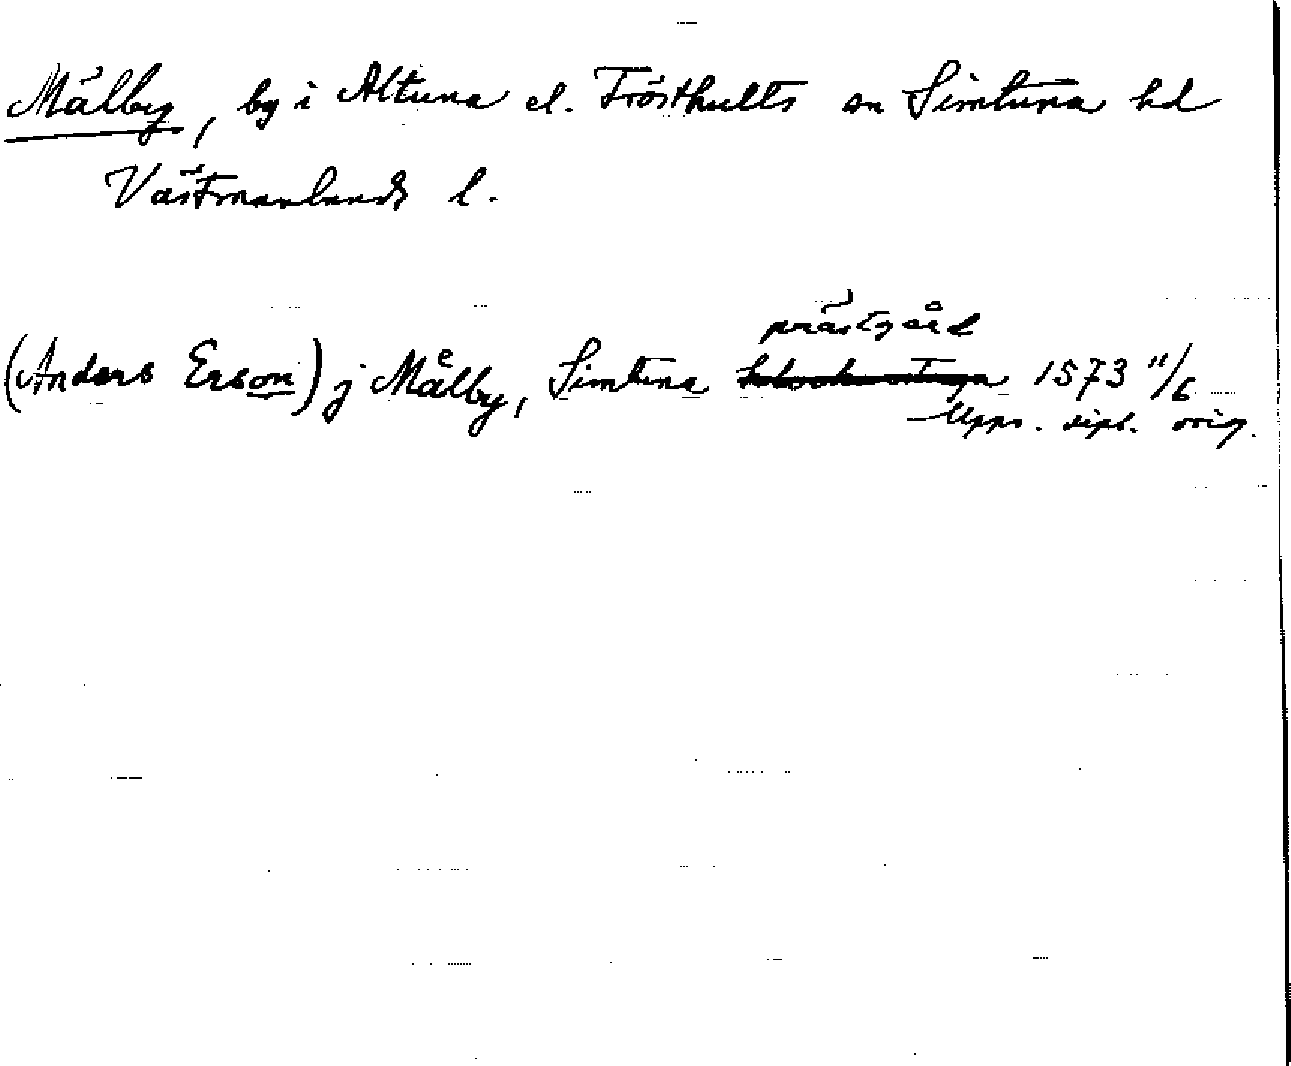 Mälby, by i Altuna el. Frösthults sn Simtuna hd
Västmanlands l.
prästgård
(Anders Erson) j Må̈lby, Simtuna 1573 11/6
Upps. dipl. orig.